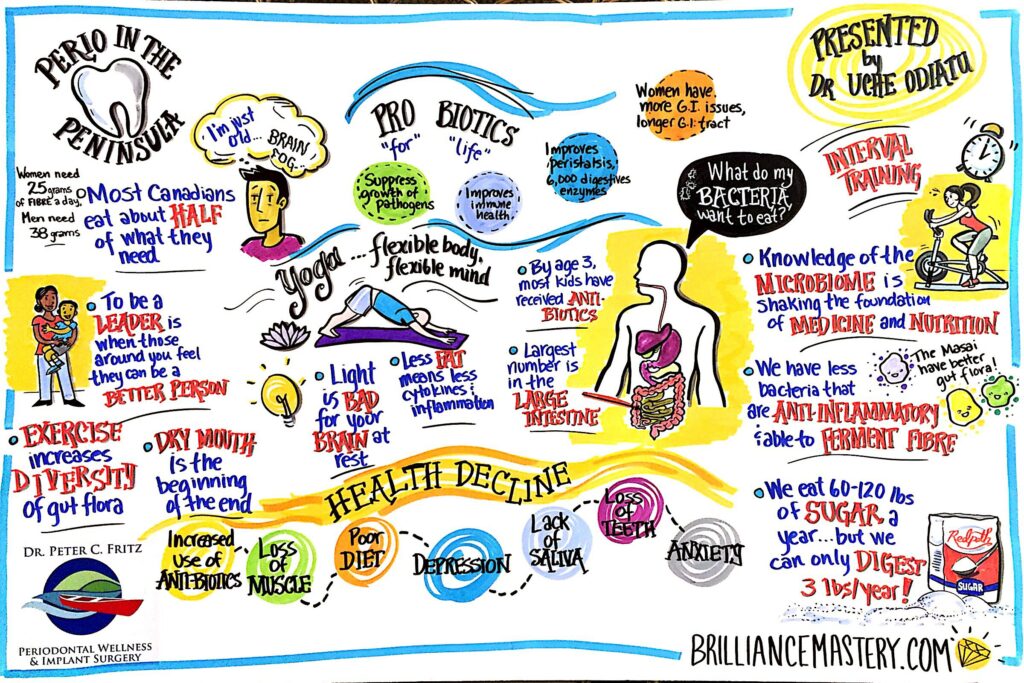 PERIO IN THE
PENINSULA
PRESENTED
by
DR UCHE ODIATU
I'm just
old...
BRAIN
FOG...
PRO BIOTICS
"for" "life"
Suppress
growth of
pathogens
Improves
immune
health
Improves
peristalsis,
6,000 digestives
enzymes
Women have
more G.I. issues,
longer G.I. tract
What do my
BACTERIA
want to eat?"
INTERVAL
TRAINING
Women need
25 grams
of FIBRE a day,
Men need
38 grams
Most Canadians
eat about HALF
of what they
need
Yoga ...flexible body,
flexible mind
• By age 3,
most kids have
received ANTI-
BIOTICS
• Knowledge of the
MICROBIOME is
shaking the foundation
of MEDICINE and NUTRITION
• To be a
LEADER is
when those
around you feel
they can be a
BETTER PERSON
• Light
is BAD
for your
BRAIN at
rest
• Less FAT
means less
cytokines &
inflammation
• Largest
number is
in the
LARGE
INTESTINE
• We have less
bacteria that
are ANTI INFLAMMATORY
& able to FERMENT FIBRE
The Masai
have better
gut flora!
• EXERCISE
increases
DIVERSITY
of gut flora
• DRY MOUTH
is the
beginning
of the end
HEALTH DECLINE
Increased
use of
ANTI-BIOTICS
Loss
of
MUSCLE
Poor
DIET
DEPRESSION
Lack
of
SALIVA
Loss
of
TEETH
ANXIETY
• We eat 60-120 lbs
of SUGAR a
year...but we
can only DIGEST
3 lbs/year!
Redpath
SUGAR
DR. PETER C. FRITZ
PERIODONTAL WELLNESS
& IMPLANT SURGERY
BRILLIANCEMASTERY.COM